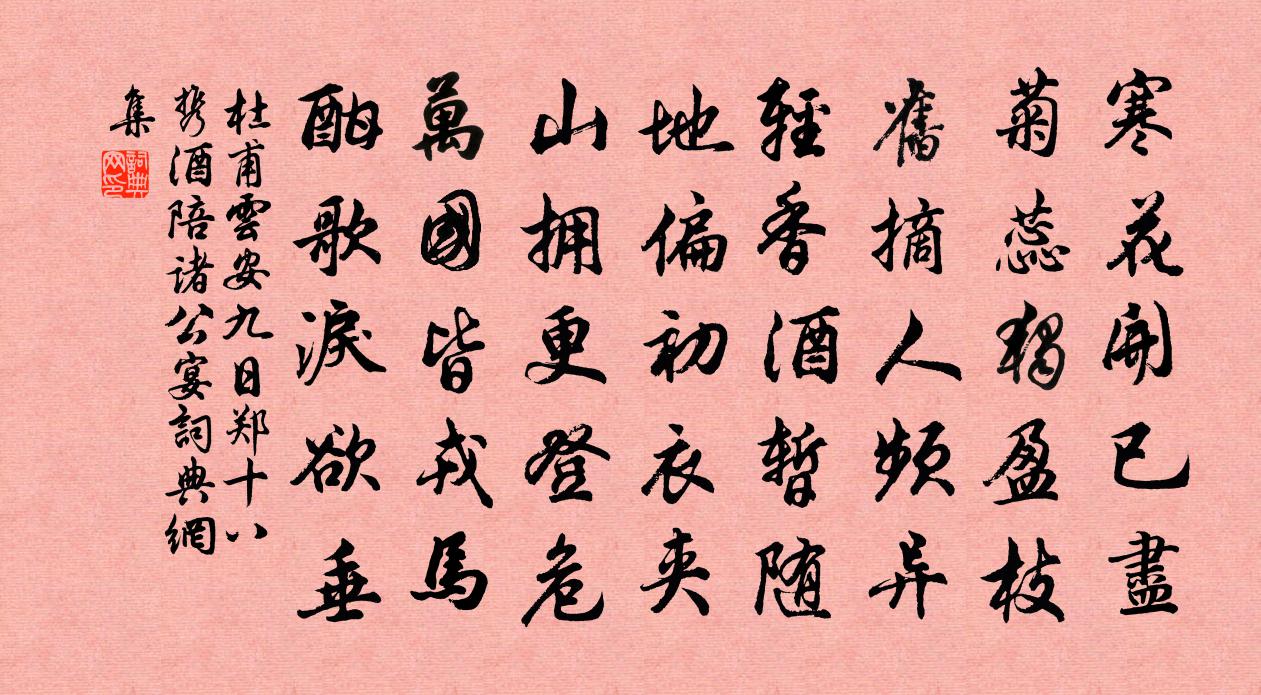 寒花開已盡
菊蕊獨盈枝
舊摘人頻异
輕香酒暫随
地偏初衣夾
山拥更登危
萬國皆戎馬
酣歌淚欲垂
杜甫雲安九日郑十八
携酒陪诸公宴詞典網
集
詞典网印